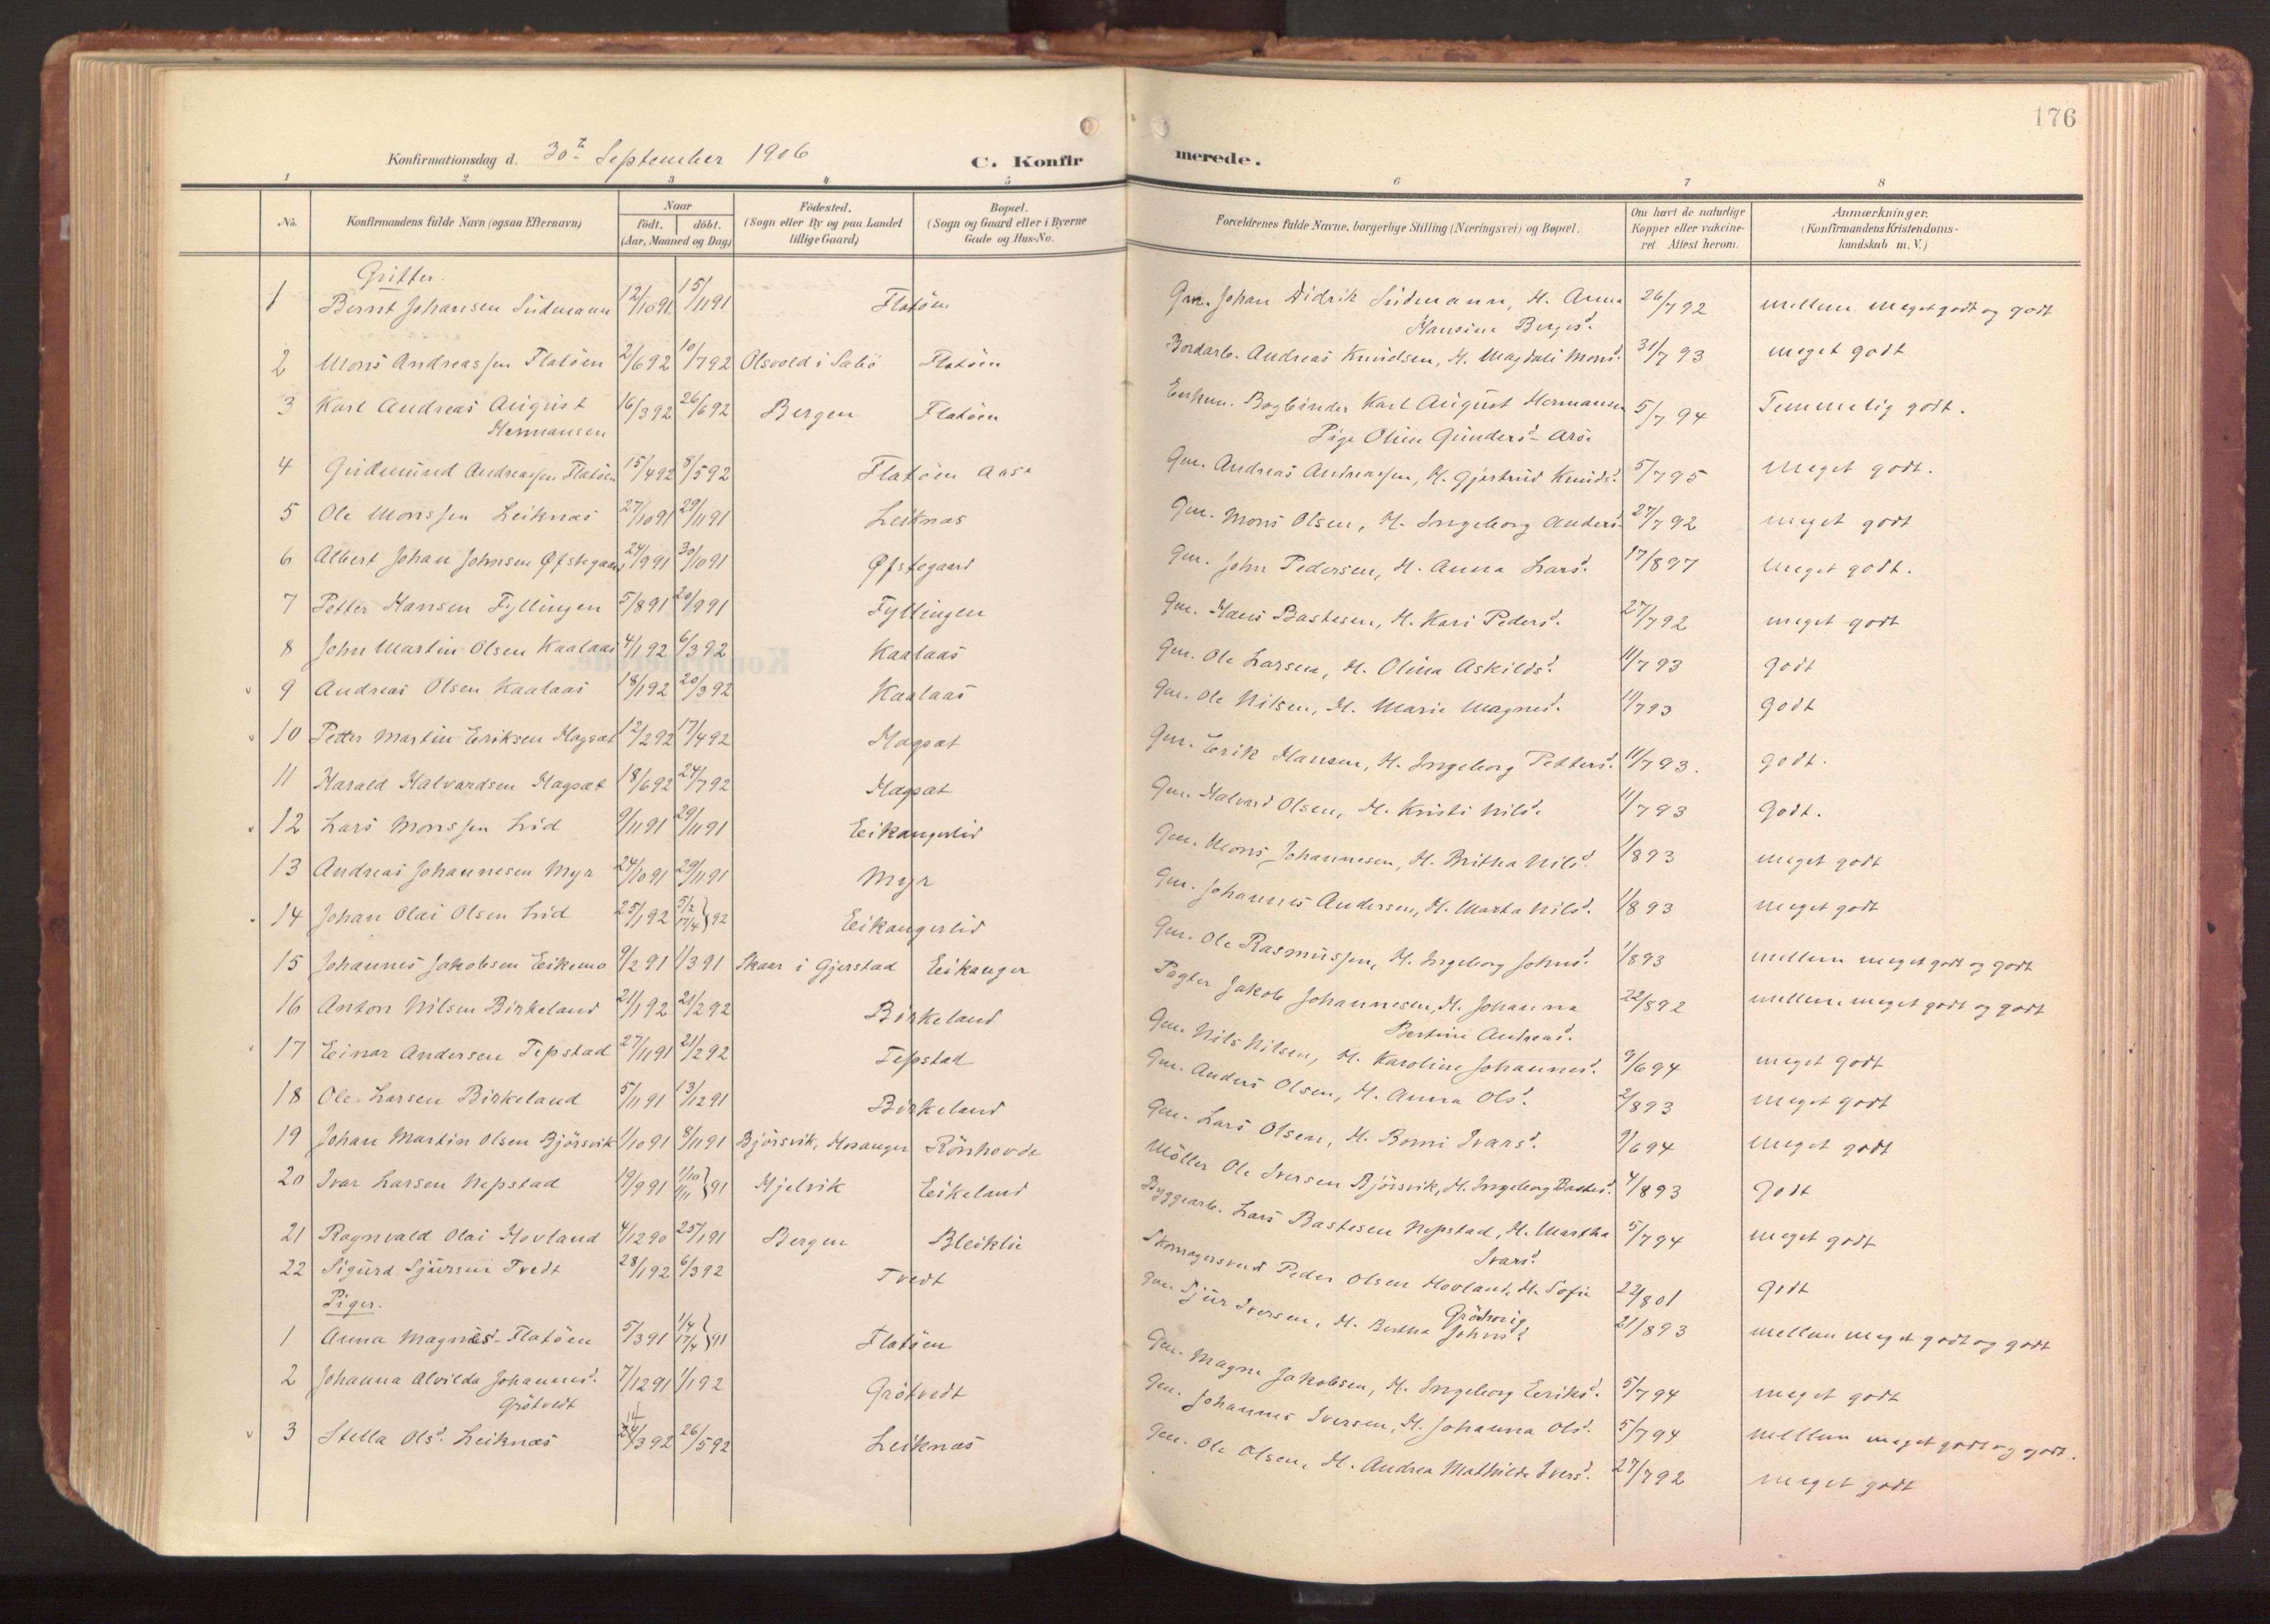 176
Konfirmationsdag d. 30te September 1906 C. Konfirmerede.
1 2 3 4 5 6 7 8
No. Konfirmandens fulde Navn (ogsaa Efternavn) Naar födt. döbt. (Aar, Maaned og Dag) Födested. (Sogn eller By og paa Landet tillige Gaard) Bopæl. (Sogn og Gaard eller i Byerne Gade og Hus-No. Forældrenes fulde Navne, borgerlige Stilling (Næringsvei) og Bopæl. Om havt de naturlige Kopper eller vakcineret. Attest herom. Anmærkninger. (Konfirmandens Kristendomskundskab m. V.)
Gutter.
1 Bernt Johansen Südmann 12/10 91 15/11 91 Flatöen Gm. Johan Didrik Südmann, H. Anna Hansine Bergesd. 26/7 92 mellem meget godt og godt
2 Mons Andreassen Flatöen 2/6 92 10/7 92 Olsvold i Sæbö Flatöen Bordarb. Andreas Knudsen, H. Magdali Monsd. 31/7 93 meget godt
3 Karl Andreas August Hermansen 16/3 92 26/6 92 Bergen Flatöen Enkem. Bogbinder Karl August Hermansen Pige Oline Gundersd. 5/7 94 Temmelig godt.
4 Gudmund Andreassen Flatöen 15/4 92 8/5 92 Flatöen Gm. Andreas Andreassen, H. Gjertrud Knudsd. 5/7 95 Meget godt.
5 Ole Monssen Leiknæs 27/10 91 29/11 91 Leiknæs Gm. Mons Olsen, H. Ingeborg Andersd. 27/7 92 meget godt
6 Albert Johan Johnsen Øfstegaard 24/9 91 30/10 91 Øfstegaard Gm. John Pedersen, H. Anna Larsd. 17/8 97 Meget godt.
7 Petter Hansen Fyllingen 5/8 91 20/9 91 Fyllingen Gm. Hans Bastesen, H. Kari Pedersd. 27/7 92 meget godt
8 John Martin Olsen Kaalaas 4/1 92 6/3 92 Kaalaas Gm. Ole Larsen, H. Olina Askildsd. 11/7 93 godt
9 Andreas Olsen Kaalaas 18/1 92 20/3 92 Kaalaas Gm. Ole Nilsen, H. Marie Magnesd. 11/7 93 godt
10 Petter Martin Eriksen Hagsæt 12/2 92 17/4 92 Hagsæt Gm. Erik Hansen, H. Ingeborg Pettersd. 11/7 93. godt.
11 Harald Halvardsen Hagsæt 18/6 92 24/7 92 Hagsæt Gm. Halvard Olsen, H. Kristi Nilsd. 11/7 93 Godt.
12 Lars Monssen Lid 9/11 91 29/11 91 Eikangerlid Gm. Mons Johannesen, H. Britha Nilsd. 1/8 93 meget godt
13 Andreas Johannesen Myr 24/10 91 29/11 91 Myr Gm. Johannes Andersen, H. Marta Nilsd. 1/8 93 meget godt
14 Johan Olai Olsen Lid 25/1 92 5/2 17/4 } 92 Eikangerlid Gm. Ole Rasmussen, H. Ingeborg Johnsd. 1/8 93 mellem meget godt og godt
15 Johannes Jakobsen Eikemo 9/2 91 1/3 91 Skaar i Gjerstad Eikanger Pagter Jakob Johannesen, H. Johanna Bertine Andreasd. 22/8 92 mellem meget godt og godt
16 Anton Nilsen Birkeland 21/1 92 21/2 92 Birkeland Gm. Nils Nilsen, H. Karoline Johannesd. 9/6 94 meget godt
17 Einar Andersen Tepstad 27/11 91 21/2 92 Tepstad Gm. Anders Olsen, H. Anna Olsd. 2/8 93 meget godt
18 Ole Larsen Birkeland 5/11 91 13/12 91 Birkeland Gm. Lars Olsen, H. Borni Ivarsd. 9/6 94 meget godt
19 Johan Martin Olsen Bjørsvik 1/10 91 8/11 91 Bjørsvik, Hosanger Rönhovde Möller Ole Iversen Bjørsvik, H. Ingeborg Bastesd. 4/8 93 Godt
20 Ivar Larsen Nepstad 19/9 91 1/10 1/11 } 91 Hjelvik Eikeland Byggearb. Lars Bastesen Nepstad, H. Martha Ivarsd. 5/7 94 meget godt
21 Ragnvald Olai Hovland 4/12 90 25/1 91 Bergen Bleiklie Skomagersvend Peder Olsen Hovland, H. Sofie 22/8 01 godt
22 Sigurd Sjursen Tvedt 28/1 92 6/3 92 Tvedt Gm. Sjur Iversen, H. Bertha Johnsd. 21/8 93 mellem meget godt og godt
Piger.
1 Anna Magnesd. Flatöen 5/3 91 1/4 17/4 } 91 Flatöen Gm. Magne Jakobsen, H. Ingeborg Eeriksd. 5/7 94 meget godt
2 Johanna Alvilda Johannesd. Grötvedt 7/12 91 1/1 92 Grötvedt Gm. Johannes Iversen, H. Johanna Olsd. 5/7 94 mellem meget godt og godt.
3 Stella Olsd. Leiknæs 24/3 92 26/5 92 Leiknæs Gm. Ole Olsen, H. Andrea Mathilde Iversd. 27/7 92 meget godt